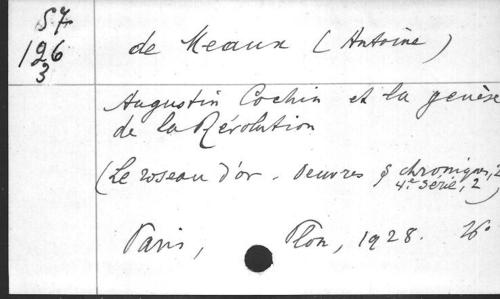 57
126
3
de Meaux (Antoine)
Augustin Cochin et la genèse
de la Révolution
(Le roseau d'or. Oeuvres & chroniques, 2
4e série, 2)
Paris, Plon, 1928. 16°